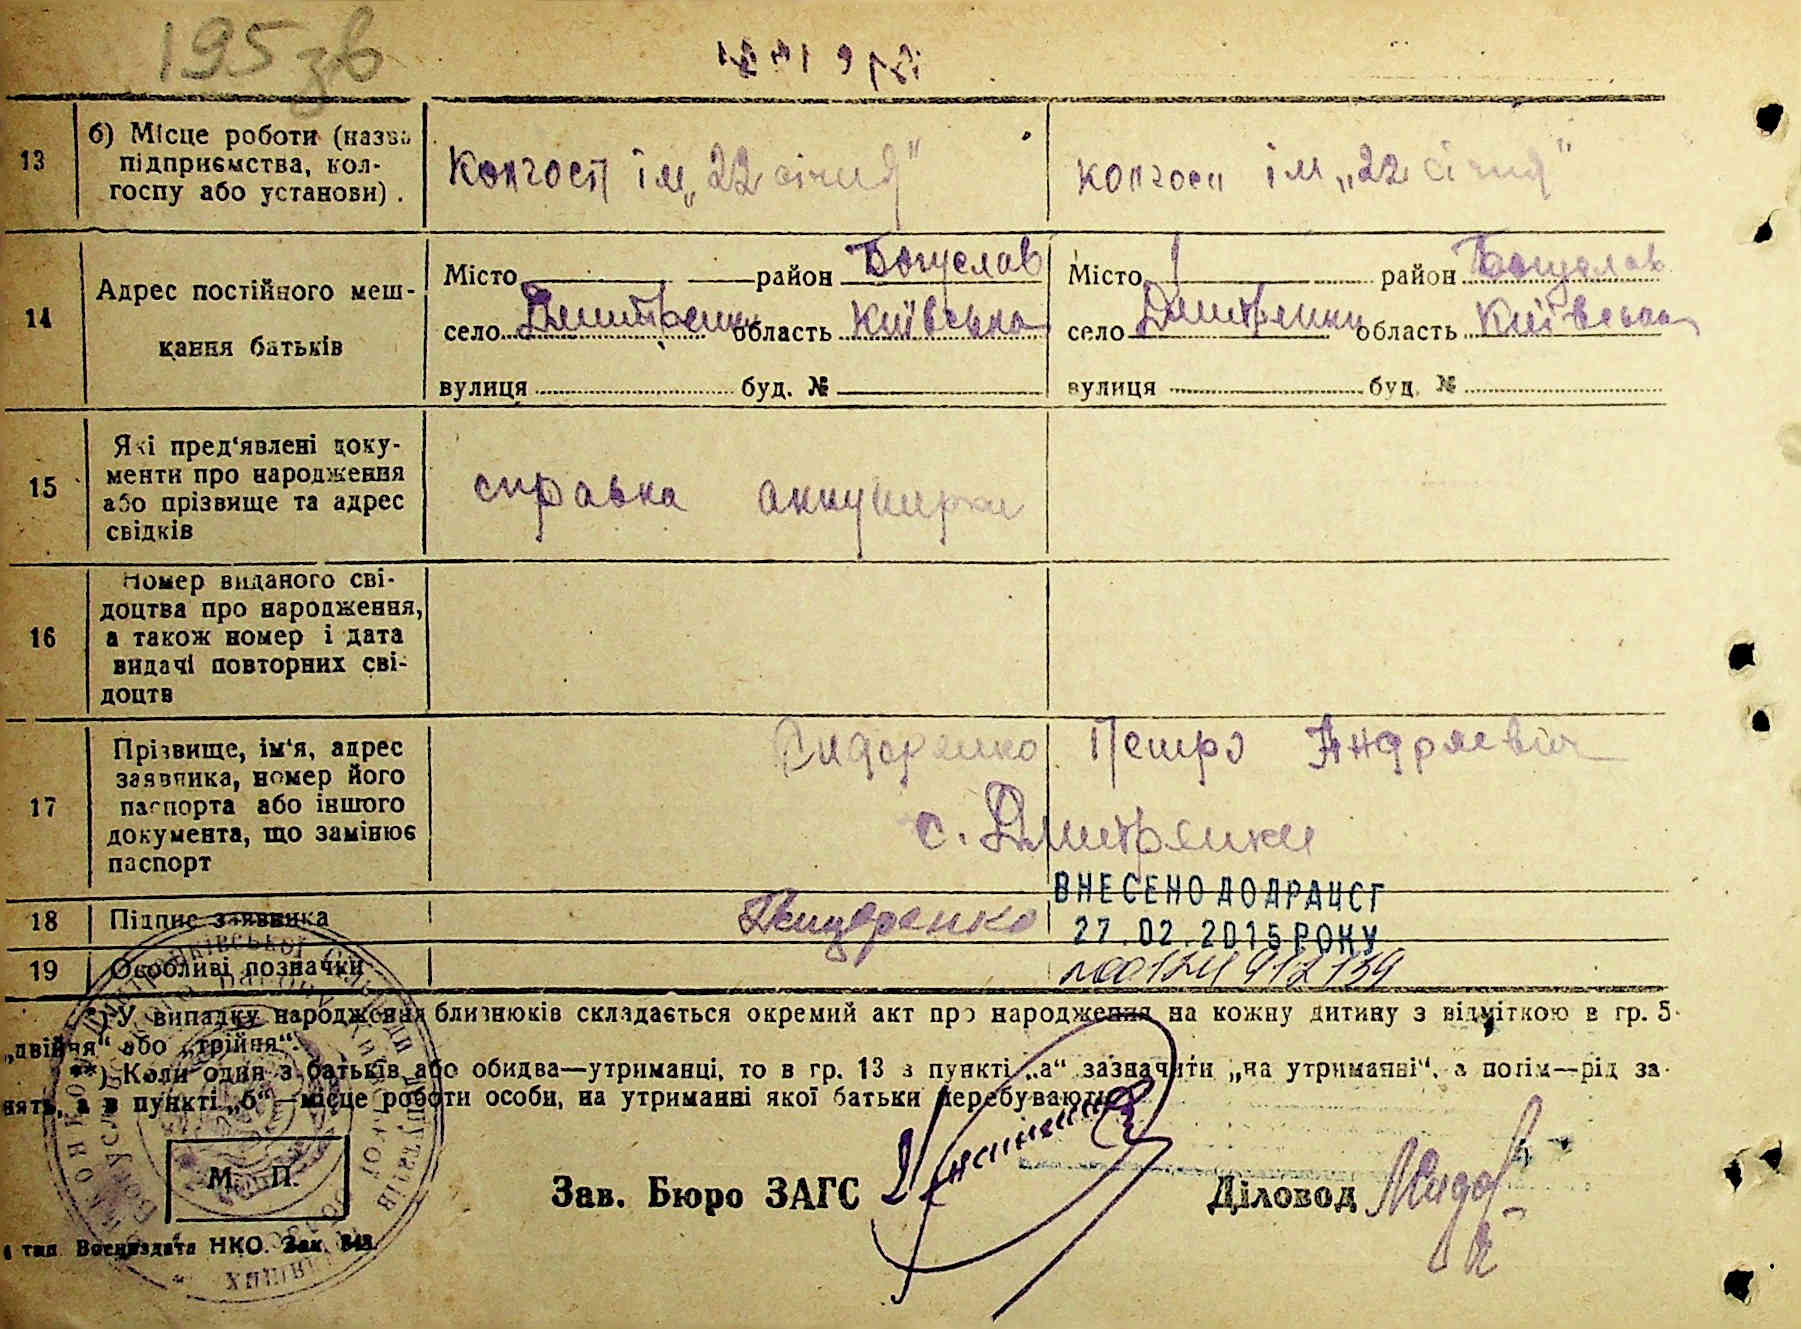 195 зв
13 б) Місце роботи (назва підприємства, колгоспу або установи) . колгосп ім „22 січня" колгосп ім „22 січня"
14 Адрес постійного мешкання батьків
Місто район Богуслав Місто район Богуслав
село Дмитренки область Київська село Дмитренки область Київська
вулиця буд. № вулиця буд. №
15 Які пред'явлені документи про народження або прізвище та адрес свідків справка аккушерки
16 Номер виданого свідоцтва про народження, а також номер і дата видачі повторних свідоцтв
17 Прізвище, ім'я, адрес заявника, номер його паспорта або іншого документа, що замінює паспорт Сидоренко Петро Андрієвіч
с. Дмитренки
ВНЕСЕНО ДО ДРАЦСГ
18 Підпис заявника Сидоренко
27.02.2015 РОКУ
19 Особливі позначки
*) У випадку народження близнюків складається окремий акт про народження на кожну дитину з відміткою в гр. 5
„двійня“ або „трійня“.
**) Коли один з батьків або обидва—утриманці, то в гр. 13 в пункті „а“ зазначити „на утриманні“, а потім—рід за-
нять, а в пункті „б“—місце роботи особи, на утриманні якої батьки перебувають.
М. П.
Зав. Бюро ЗАГС Діловод
тип. Воениздата НКО. Зак.